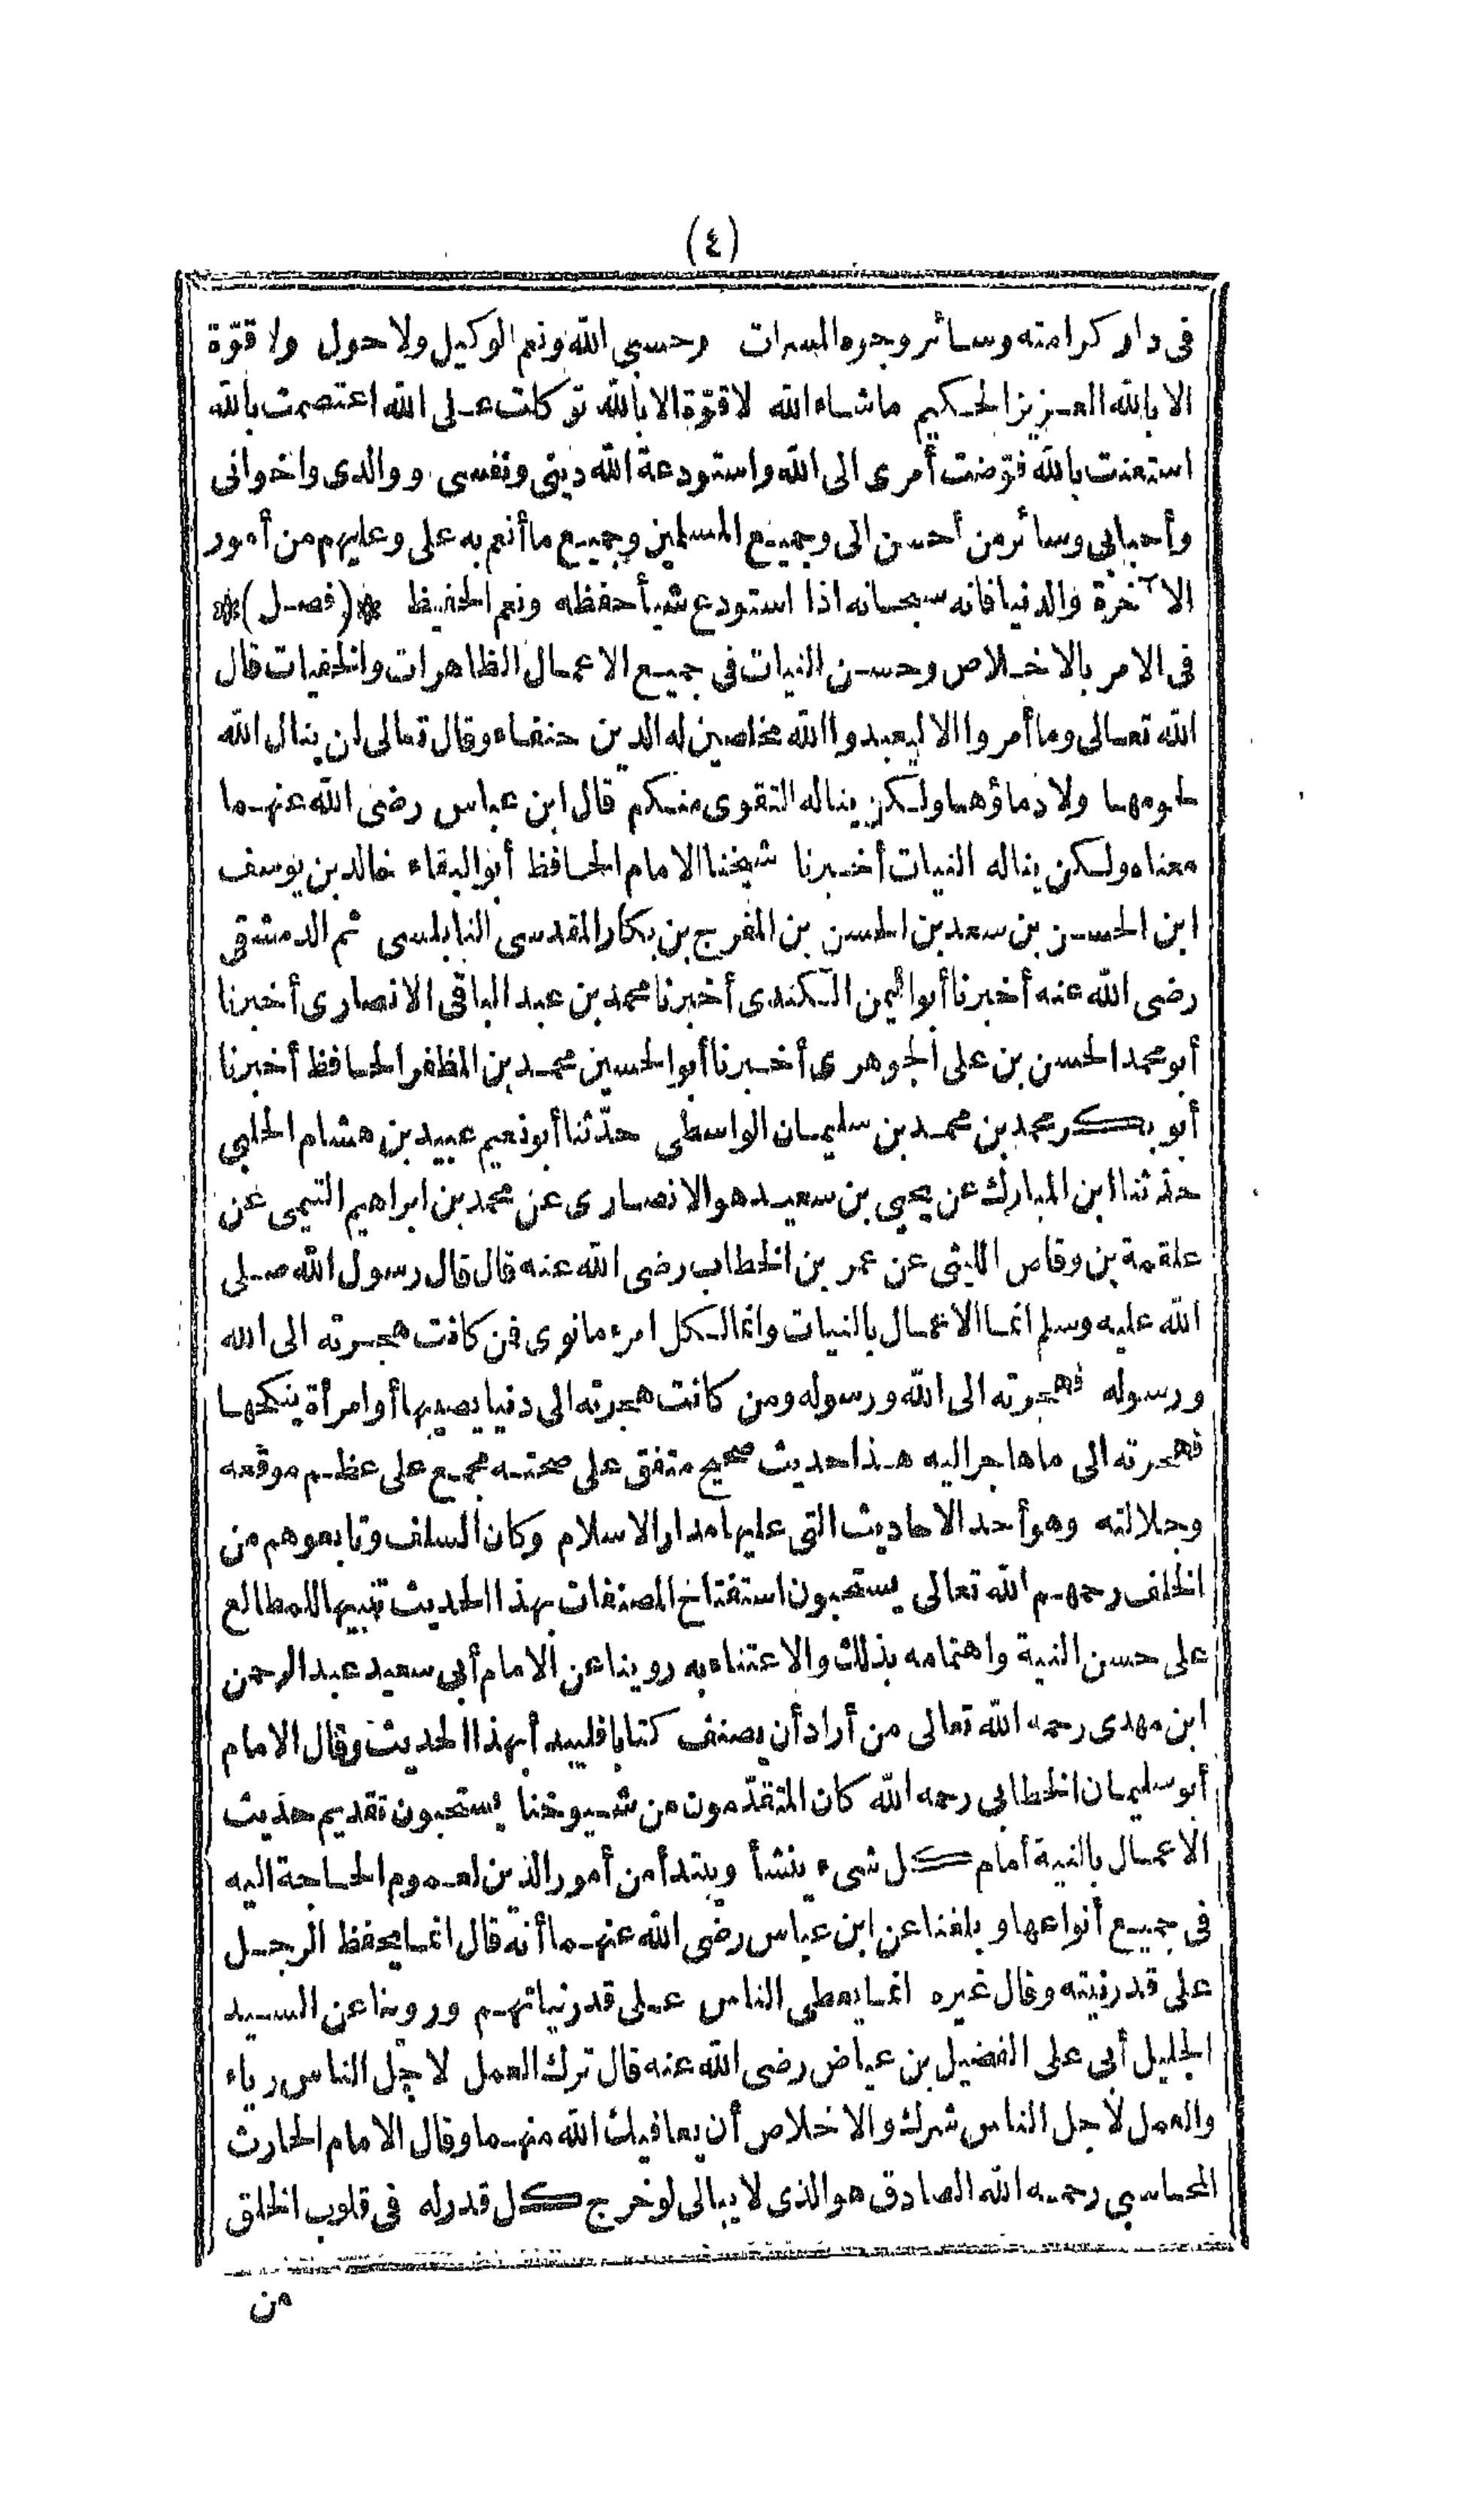 (٤)
فى دار كرامته وسائر وجوه المسرات وحسبى الله ونعم الوكيل ولا حول ولا قوّة
الا بالله العزيز الحكيم ماشاء الله لا قوّة الا بالله توكلت على الله اعتصمت بالله
استعنت بالله فوّضت أمرى الى الله واستودعة الله دينى ونفسى ووالدى واخوانى
وأحبابى وسائر من أحسن الى وجميع المسلمين وجميع ما أنعم به على وعليهم من أمور
الآخرة والدنيا فانه سبحانه اذا استودع شيأ حفظه ونعم الحفيظ *(فصل)*
فى الامر بالاخلاص وحسن النيات فى جميع الاعمال الظاهرات والخفيات قال
الله تعالى وما أمروا الا ليعبدوا الله مخلصين له الدين حنفاء وقال تعالى لن ينال الله
لحومها ولا دماؤها ولكن يناله التقوى منكم قال ابن عباس رضى الله عنهما
معناه ولكن يناله النيات أخبرنا شيخنا الامام الحافظ أبو البقاء خالد بن يوسف
ابن الحسن بن سعد بن الحسن بن المفرج بن بكار المقدسى النابلسى ثم الدمشقى
رضى الله عنه أخبرنا أبو اليمن الكندى أخبرنا محمد بن عبد الباقى الانصارى أخبرنا
أبو محمد الحسن بن على الجوهرى أخبرنا أبو الحسين محمد بن المظفر الحافظ أخبرنا
أبو بكر محمد بن محمد بن سليمان الواسطى حدّثنا أبو نعيم عبيد بن هشام الحلبى
حدثنا ابن المبارك عن يحيى بن سعيد هو الانصارى عن محمد بن ابراهيم التيمى عن
علقمة بن وقاص الليثى عن عمر بن الخطاب رضى الله عنه قال قال رسول الله صلى
الله عليه وسلم انما الاعمال بالنيات وانما لكل امرء مانوى فمن كانت هجرته الى الله
ورسوله فهجرته الى الله ورسوله ومن كانت هجرته الى دنيا يصيبها أو امرأة ينكحها
فهجرته الى ما هاجر اليه هذا حديث صحيح متفق على صحته مجمع على عظم موقعه
وجلالته وهو أحد الاحاديث التى عليها مدار الاسلام وكان السلف وتابعوهم من
الخلف رحمهم الله تعالى يستحبون استفتاح المصنفات بهذا الحديث تنبيها للمطالع
على حسن النية واهتمامه بذلك والاعتناء به روينا عن الامام أبى سعيد عبد الرحمن
ابن مهدى رحمه الله تعالى من أراد أن يصنف كتابا فليبدأ بهذا الحديث وقال الامام
أبو سليمان الخطابى رحمه الله كان المتقدّمون من شيوخنا يستحبون تقديم حديث
الاعمال بالنية أمام كل شىء ينشأ ويبتدأ من أمور الدين لعموم الحاجة اليه
فى جميع أنواعها وبلغنا عن ابن عباس رضى الله عنهما أنه قال انما يحفظ الرجل
على قدر نيته وقال غيره انما يعطى الناس على قدر نياتهم وروينا عن السيد
الجليل أبى على الفضيل بن عياض رضى الله عنه قال ترك العمل لاجل الناس رياء
والعمل لاجل الناس شرك والاخلاص أن يعافيك الله منهما وقال الامام الحارث
المحاسبى رحمه الله الصادق هو الذى لا يبالى لو خرج كل قدر له فى قلوب الخلق
من